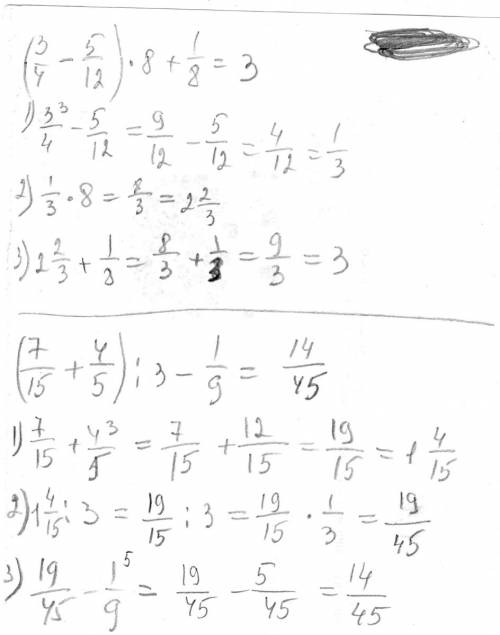 (3/4 − 5/12) · 8 + 1/8 = 3
1) 3³/4 − 5/12 = 9/12 − 5/12 = 4/12 = 1/3
2) 1/3 · 8 = 8/3 = 2 2/3
3) 2 2/3 + 1/8 = 8/3 + 1/3 = 9/3 = 3
(7/15 + 4/5) : 3 − 1/9 = 14/45
1) 7/15 + 4³/5 = 7/15 + 12/15 = 19/15 = 1 4/15
2) 1 4/15 : 3 = 19/15 : 3 = 19/15 · 1/3 = 19/45
3) 19/45 − 1⁵/9 = 19/45 − 5/45 = 14/45